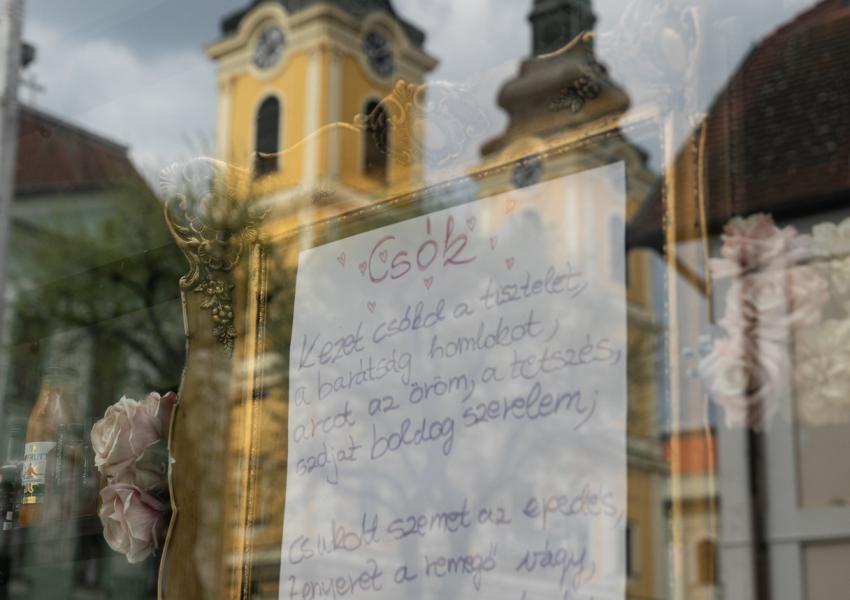 Csók
Kezet csókol a tisztelet,
a barátság homlokot,
arcot az öröm, a tetszés,
szájat boldog szerelem;
Csukott szemet az epedés,
Tenyeret a remegő vágy,